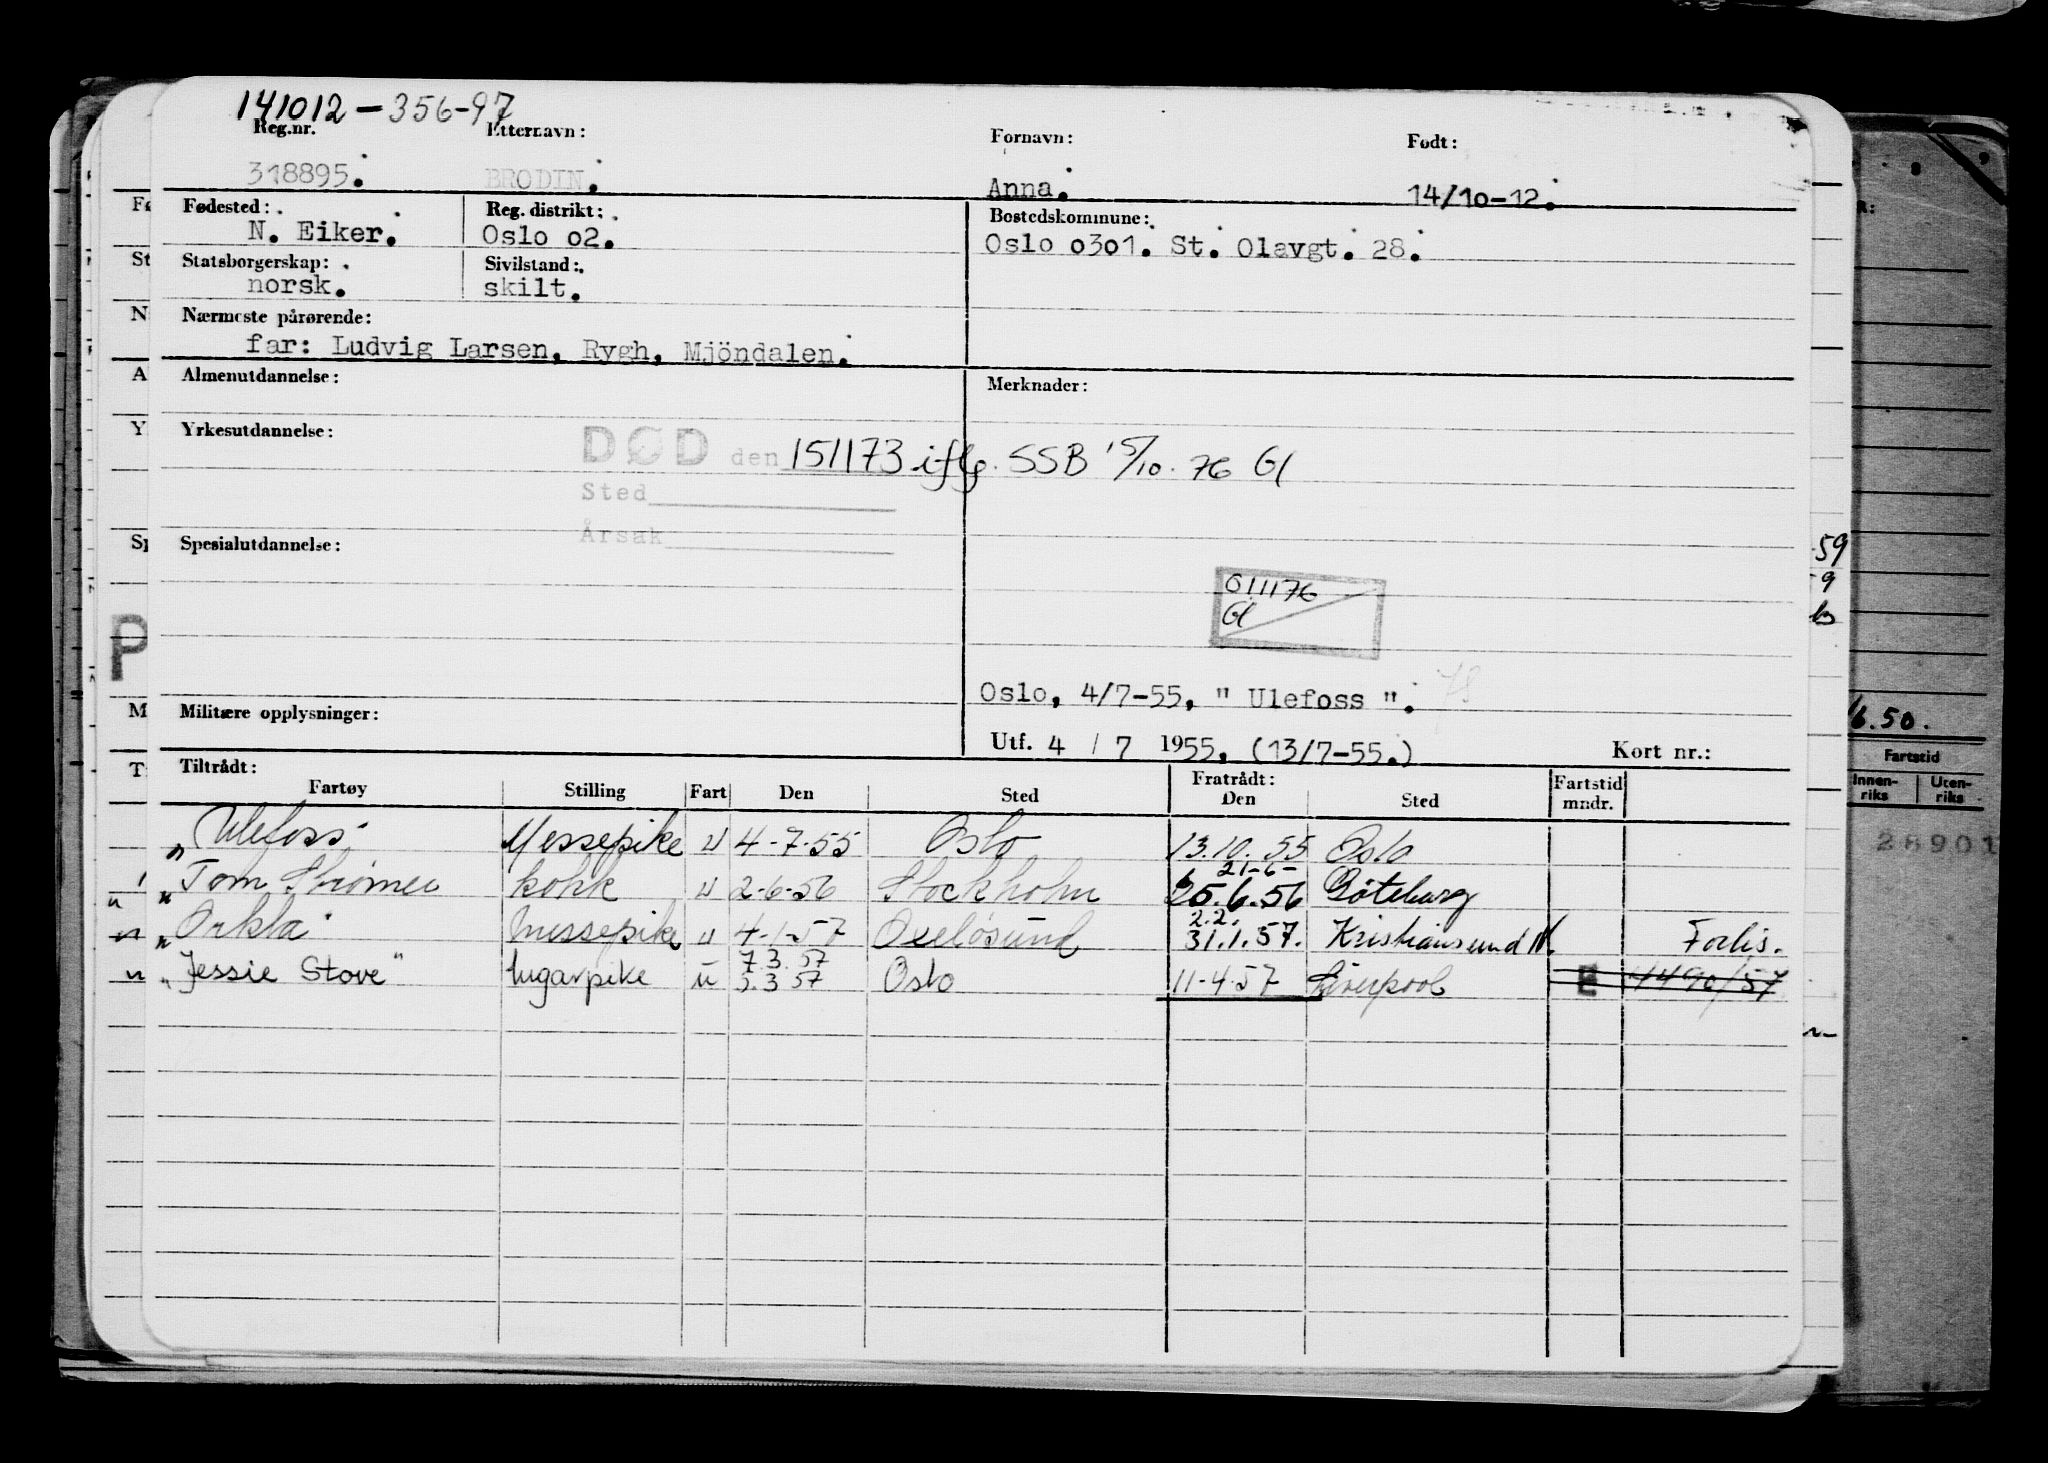 141012-356-97
Reg.nr. Etternavn: Fornavn: Født:
318895. BRODIN. Anna. 14/10-12.
Fødested: Reg. distrikt: Bostedskommune:
N. Eiker. Oslo 02. Oslo 0301. St. Olavgt. 28.
Statsborgerskap: Sivilstand:
norsk. skilt.
Nærmeste pårørende:
far: Ludvig Larsen, Rygh, Mjöndalen.
Almenutdannelse: Merknader:
Yrkesutdannelse:
DØD den 151173 iflg. SSB 15/10. 76 Gl
Sted
Årsak
Spesialutdannelse:
011176
Gl
Oslo, 4/7-55, " Ulefoss ".
Militære opplysninger:
Utf. 4 / 7 1955. (13/7-55.) Kort nr.:
Tiltrådt: Fratrådt: Fartstid
Fartøy Stilling Fart Den Sted Den Sted mndr.
"Ulefoss" Messepike u 4-7-55 Oslo 13.10.55 Oslo
21-6-
" Tom Strømer kokk u 2-6-56 Stockholm 25.6.56 Göteborg
2.2.
"Orkla" messepike u 4-1-57 Oxeløsund 31.1.57. Kristiansund N. Forlis.
7.3.57
"Jessie Stove" lugarpike u 5.3 57 Oslo 11-4-57 Liverpool E 1490/57
59
9
6.50.
Fartstid
Innen-
riks Uten-
riks
28901